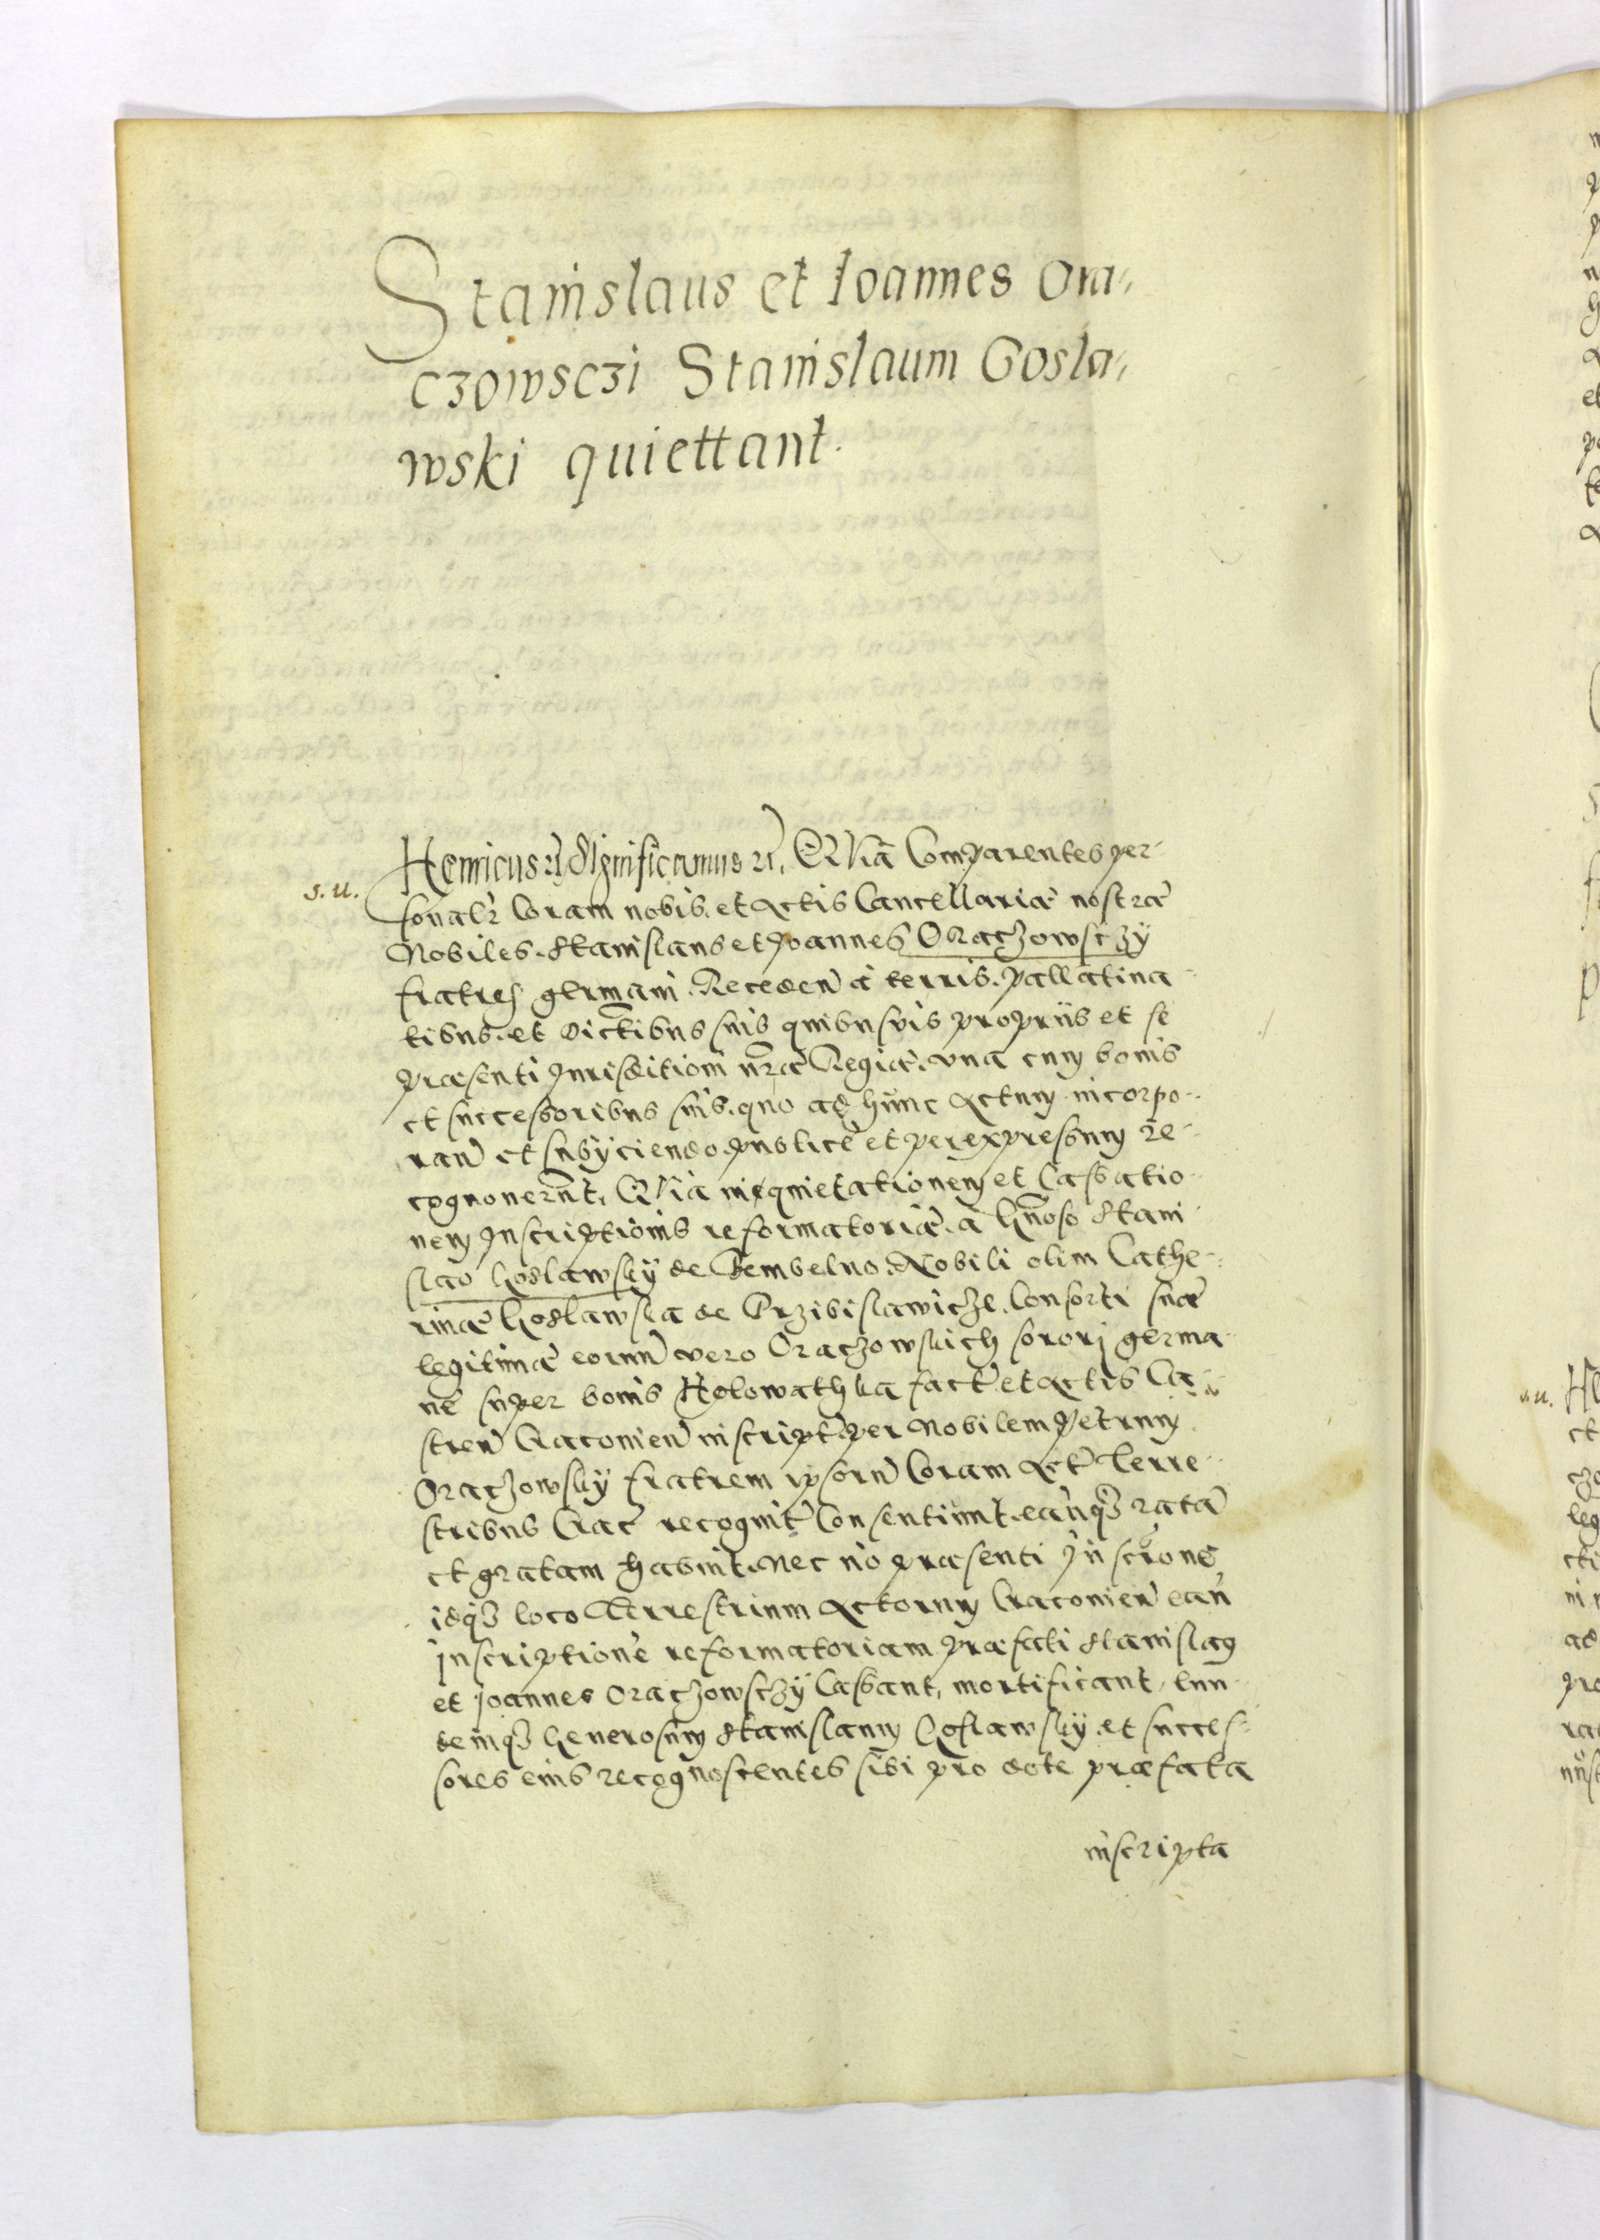 Stanislaus et Ioannes Ora„
czowsczi Stanislaum Gosla„
wski quiettant.
s. u.
Henricus etc. Significamus etc. Quia Comparentes per-
sonalr Coram nobis et Actis Cancellariae nostrae
Nobiles Stanislaus et Joannes Oraczowsczÿ
fratres germani. Receden a terris, pallatina-
tibus et districtibus suis quibusvis propriis et se
praesenti Jurisditioni nrae Regiae una cum bonis
et successoribus suis, quo ad hunc Actum incorpo-
ran et subÿciendo, publice et per expressum re-
cognoverunt, Quia in quietationem et Cassatio-
nem Inscriptionis reformatoriae a Gnoso Stani-
slao Goslawskÿ de Bembelno Nobili olim Cathe-
rinae Goslawska de Przibislawicze Consorti suae
legitimae eorum vero Oraczowskich sorori germa-
nae super bonis Kolowathka fact et Actis Ca-
stren Cracovien inscript per Nobilem Petrum
Oraczowskÿ fratrem ipsorum Coram Act Terre-
stribus Crac recognit Consentiunt eamq rata
et gratam habuit. Nec no praesenti Inscrone
idq loco Terrestrium Actorum Cracovien ean
inscriptione reformatoriam praefati Stanislaus
et Joannes Oraczowsczÿ Cassant, mortificant, Eun-
demq Generosum Stanislaum Goslawskÿ et succes-
sores eius recognoscentes sibi pro dote praefata
inscripta